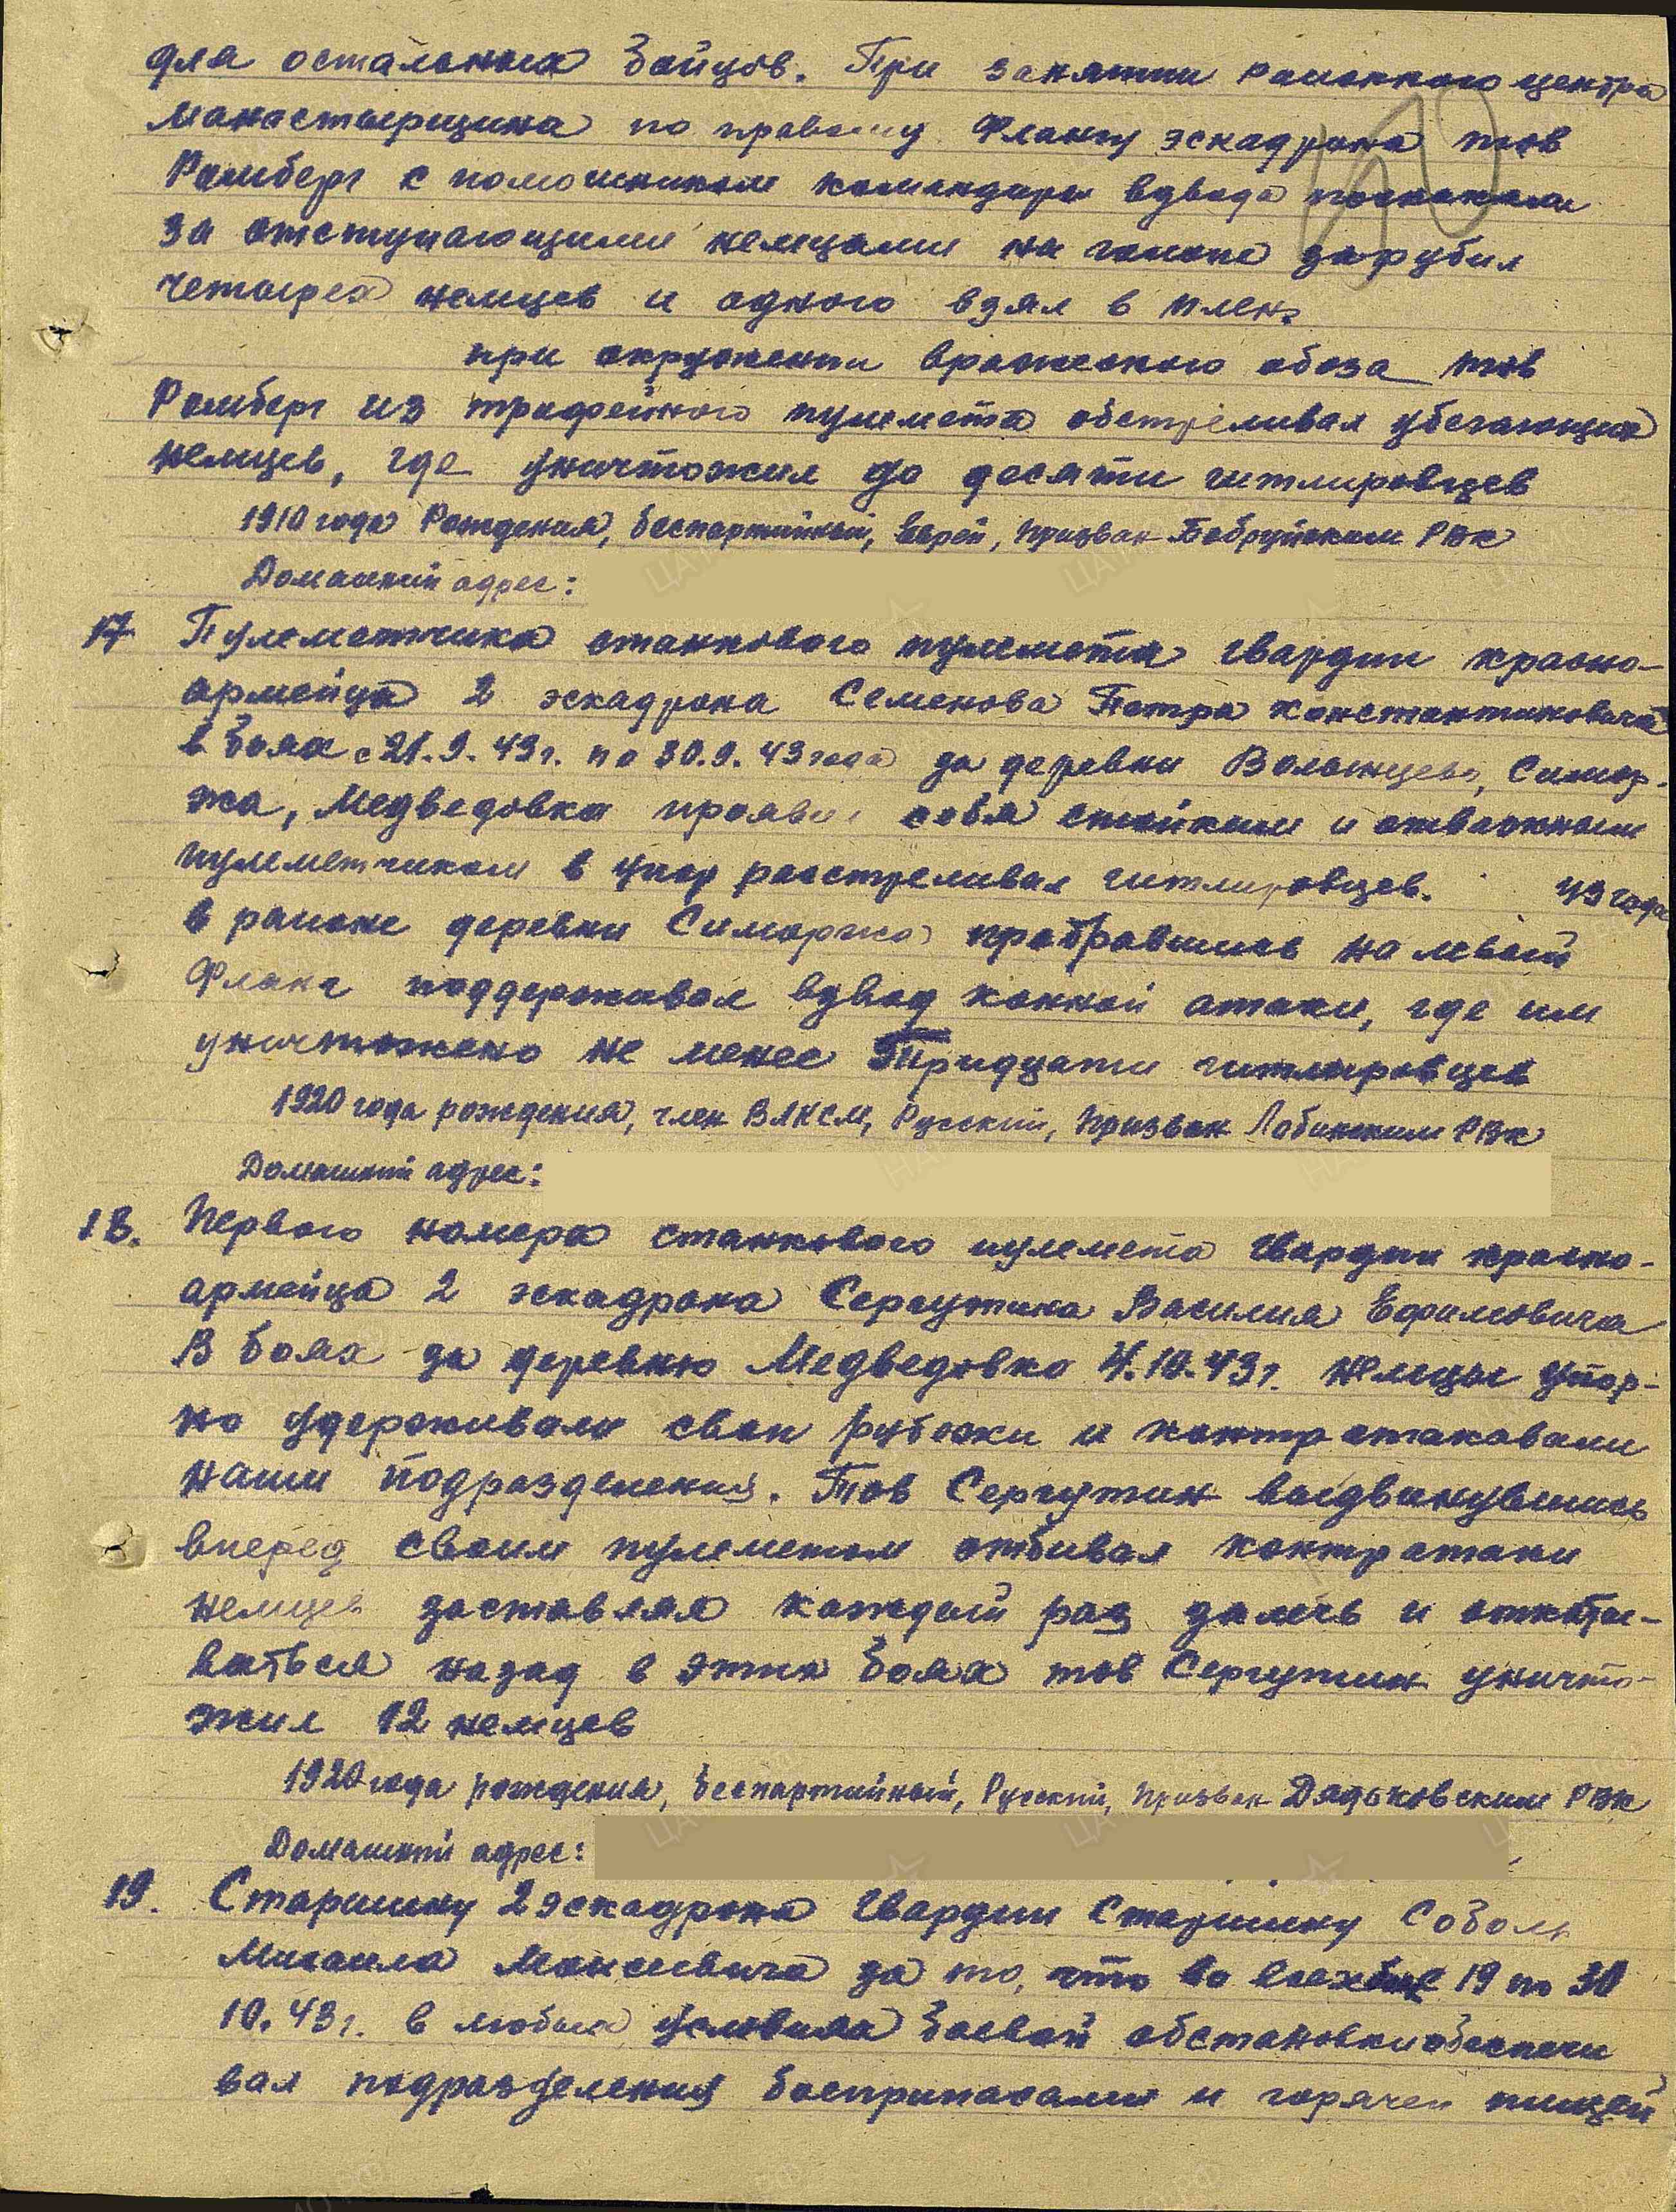 для остальных бойцов. При занятии районного центра
Манастырщина по правому флангу эскадрона тов
Рамберг с помошником командира взвода поскакали
за отступающими немцами на галопе зарубил
четырех немцев и одного взял в плен.
при окружении вражеского обоза тов
Рамберг из трофейного пулемета обстреливал убегающих
немцев, где уничтожил до десяти гитлировцев
1910 года Рождения, беспартийный, Еврей, призван Бобруйским РВК
Домашний адрес:
17 Пулеметчика станкового пулемета гвардии красно-
армейца 2 эскадрона Семенова Петра Константиновича
в боях с 21.9.43г. по 30.9.43 года за деревни Волынцево, Симор-
жа, Медведовка проявил себя стойким и отважным
пулеметчиком в упор расстреливал гитлировцев. 43 года
в районе деревни Симоржа пробравшись на левый
Фланг поддерживал взвод конной атаки, где им
уничтожено не менее Тридцати гитлировцев
1920 года рождения, член ВЛКСМ, Русский, призван Лабинским РВК
Домашний адрес:
18. Первого номера станкового пулемета гвардии красно-
армейца 2 эскадрона Сергутина Василия Ефимовича
В боях за деревню Медведовка 4.10.43г. немцы упор-
но удерживали свои рубежи и контратаковали
наши подразделения. Тов Сергутин выдвинувшись
вперед своим пулеметом отбивал контратаки
немцев заставляя каждый раз залечь и откаты-
ваться назад в этих боях тов Сергутин уничто-
жил 12 немцев
1920 года рождения, беспартийный, Русский, призван Дядьковским РВК
Домашний адрес:
19. Старшину 2 эскадрона гвардии Старшину Соболь
Михаила Моисеевича за то, что во всех 19 по 30
10.43г. в любых условиях боевой обстановки обеспечи
вал подразделения боеприпасами и горячей пищей